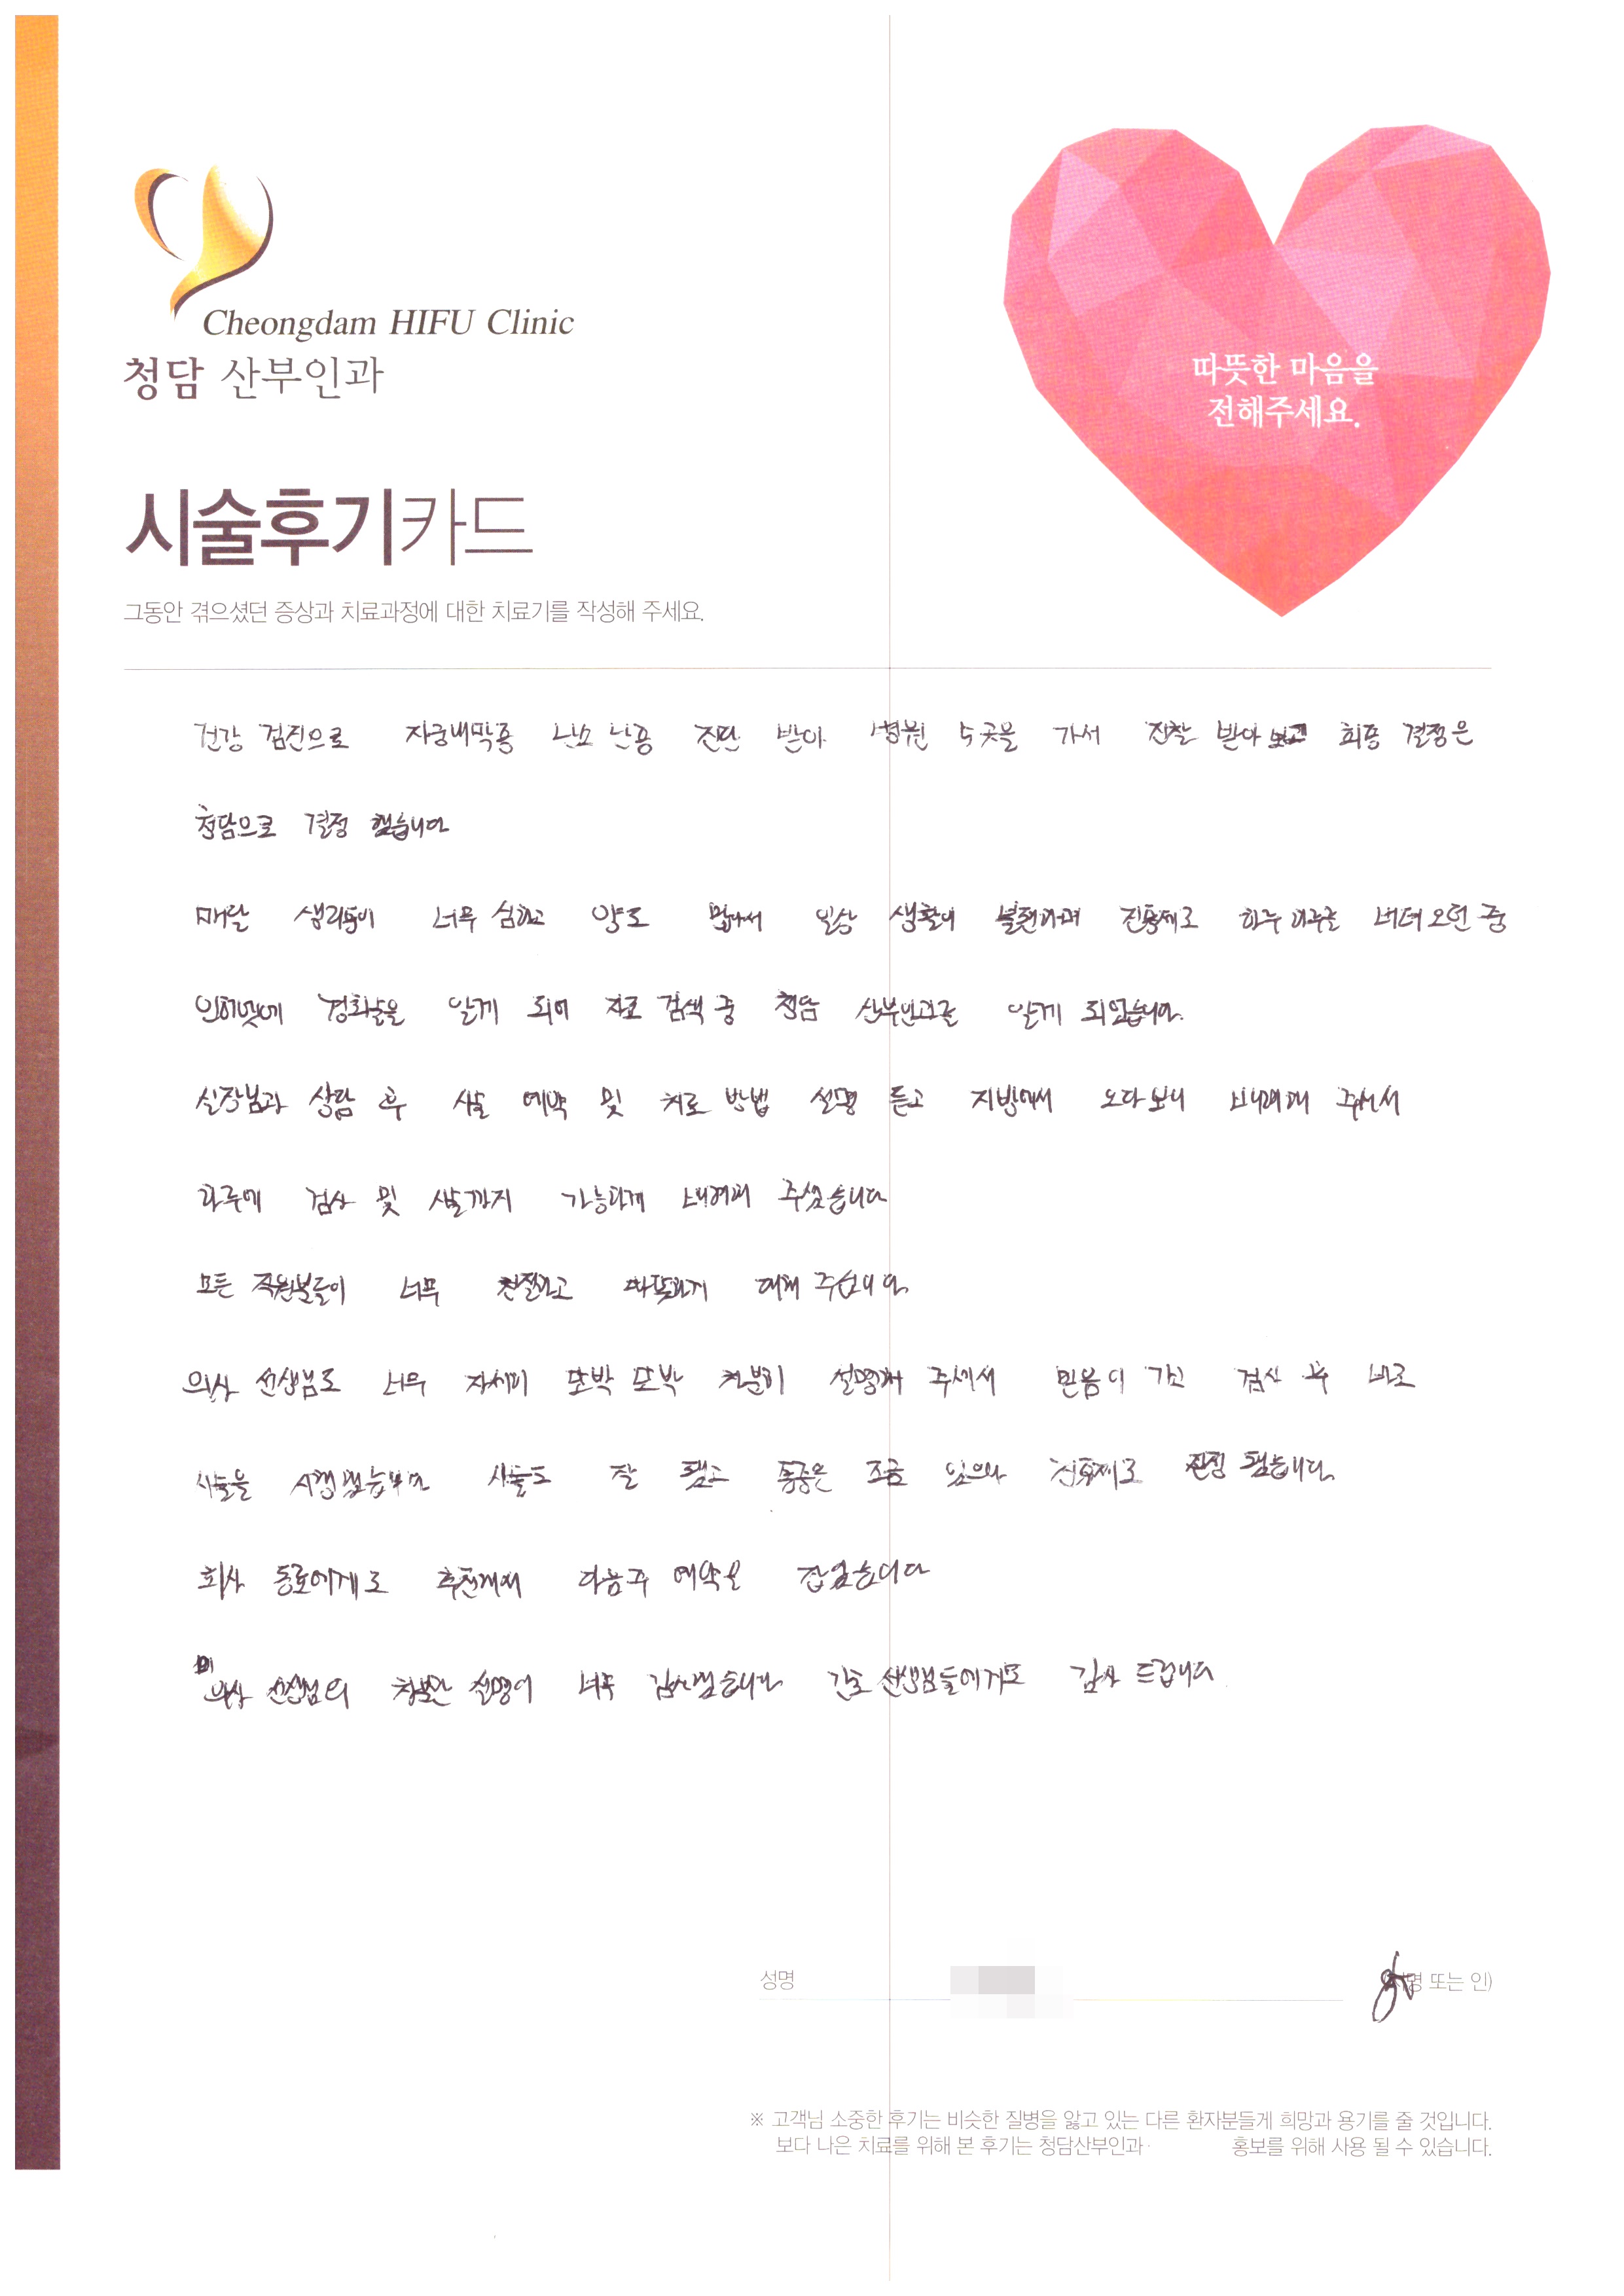 Cheongdam HIFU Clinic
청담 산부인과
따뜻한 마음을
전해주세요.
시술후기카드
그동안 겪으셨던 증상과 치료과정에 대한 치료기를 작성해 주세요.
건강 검진으로 자궁내막증 난소 난종 진단 받아 병원 수곳을 가서 진찰 받아 보고 최종 결정은
청담으로 결정 했습니다
매달 생리통이 너무 심하고 양도 많아서 일상 생활이 불편하며 진통제로 하루 하루를 버텨오던 중
인터넷에 경화술을 알게 되어 자료 검색 중 청담 산부인과를 알게 되었습니다.
실장님과 상담 후 시술 예약 및 치료 방법 설명 듣고 지방에서 오다보니 배려해 주셔서
하루에 검사 및 시술까지 가능하게 배려해 주셨습니다
모든 직원분들이 너무 친절하고 따뜻하게 대해 주십니다.
의사 선생님도 너무 자세히 또박 또박 차분히 설명해 주셔서 믿음이 가고 검사 후 바로
시술을 시행했습니다 시술도 잘 됐고 통증은 조금 있으나 진통제로 진정 됐습니다.
회사 동료에게도 추천해서 다음주 예약을 잡았습니다
의사 선생님의 차분한 설명이 너무 감사했습니다 간호 선생님들에게도 감사 드립니다.
성명 또는 인)
※ 고객님 소중한 후기는 비슷한 질병을 앓고 있는 다른 환자분들게 희망과 용기를 줄 것입니다.
보다 나은 치료를 위해 본 후기는 청담산부인과 홍보를 위해 사용 될 수 있습니다.